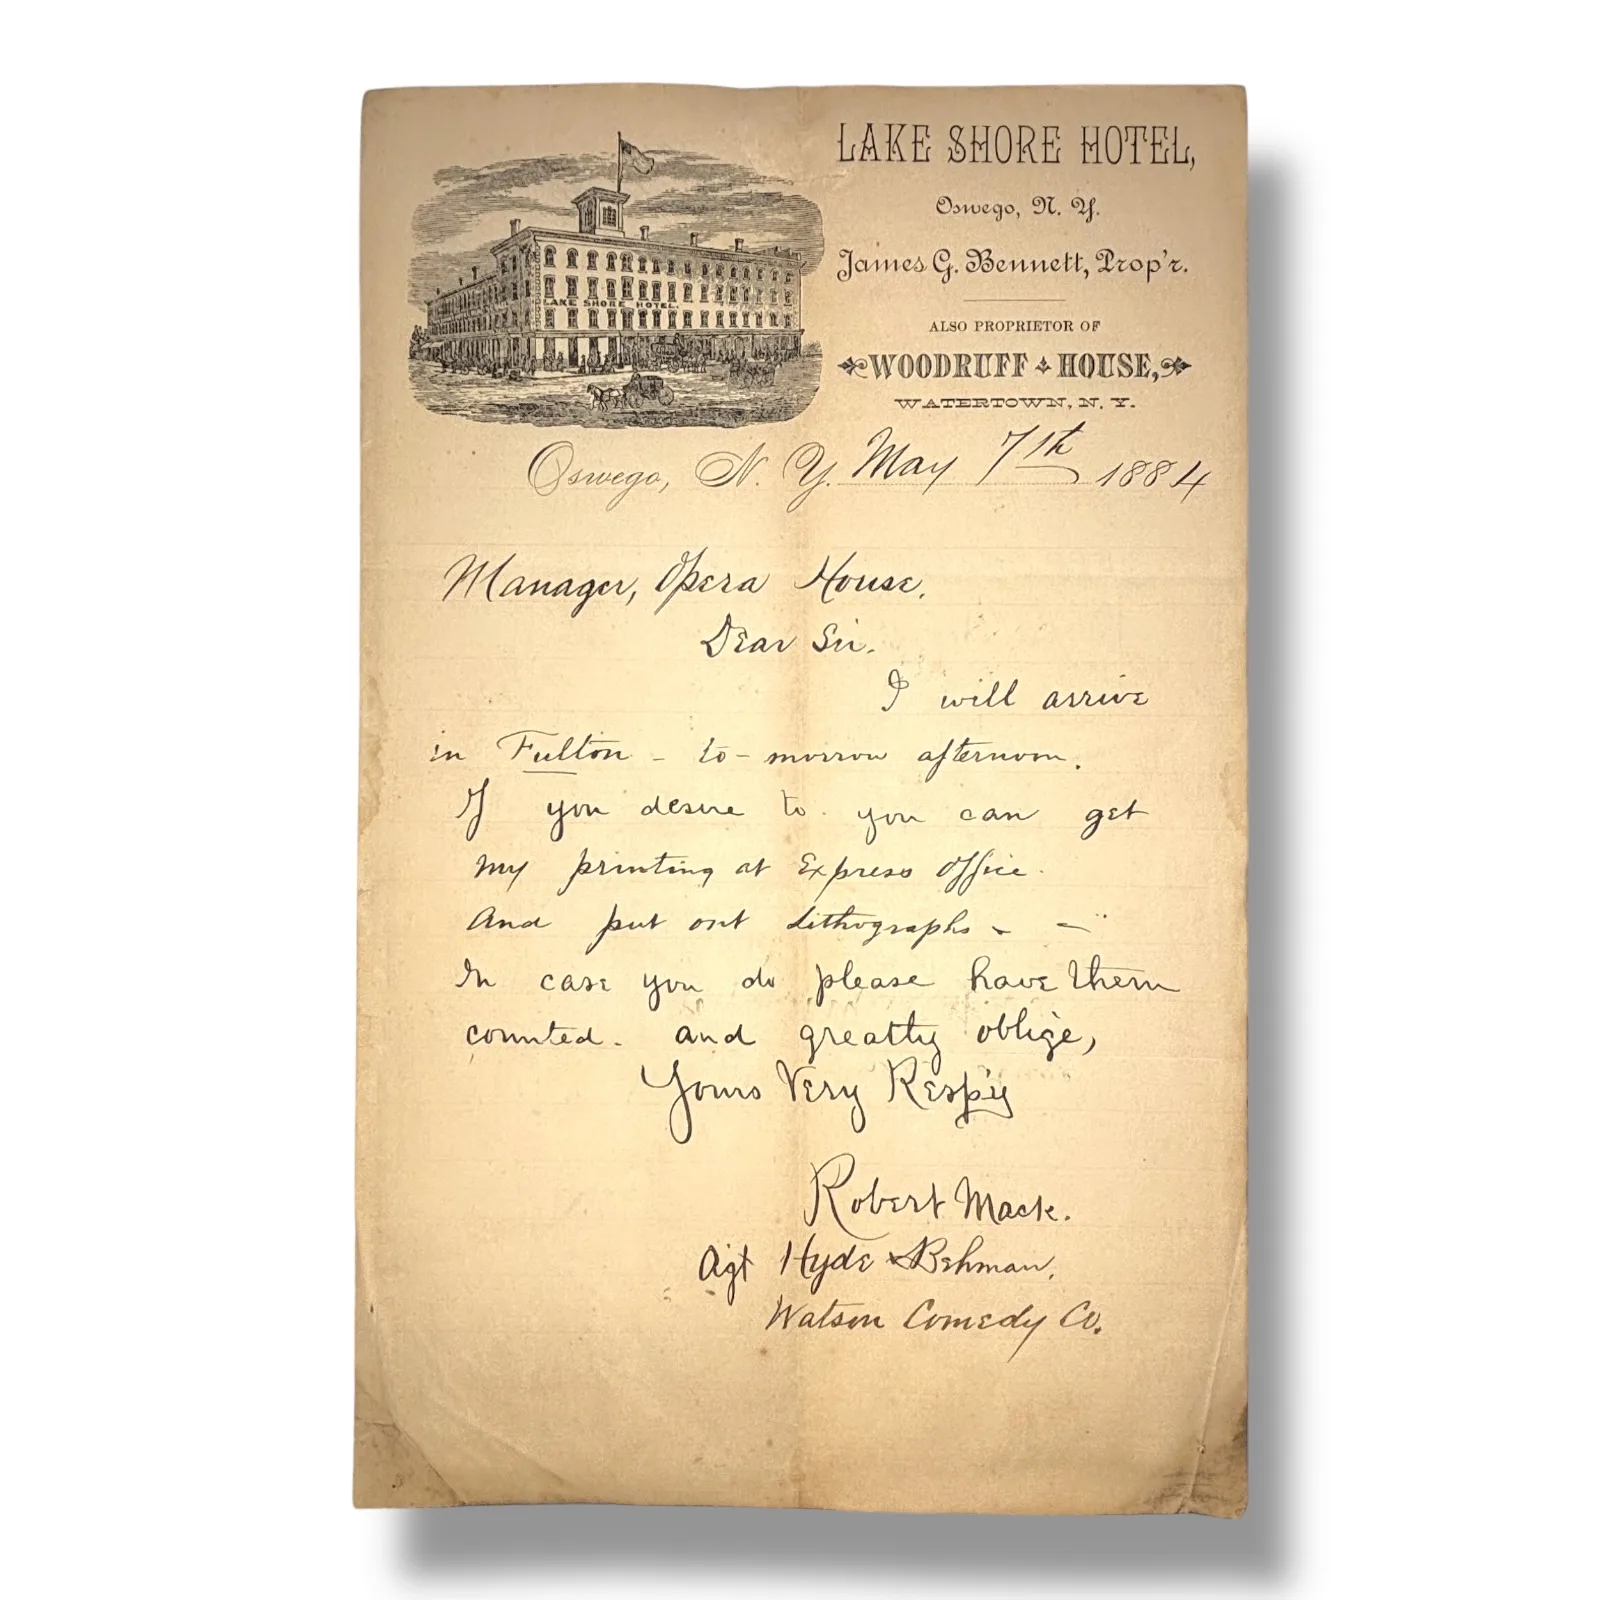 LAKE SHORE HOTEL,
Oswego, N. Y.
James G. Bennett, Prop'r.
ALSO PROPRIETOR OF
WOODRUFF HOUSE,
WATERTOWN, N. Y.
LAKE SHORE HOTEL.
Oswego, N. Y. May 7th 1884
Manager, Opera House.
Dear Sir.
I will arrive
in Fulton - to-morrow afternoon.
If you desire to you can get
my printing at Express Office.
And put out Lithographs - -
In case you do please have them
counted. and greatly oblige,
Yours Very Resp'y
Robert Mack.
Agt Hyde & Behman.
Watson Comedy Co.